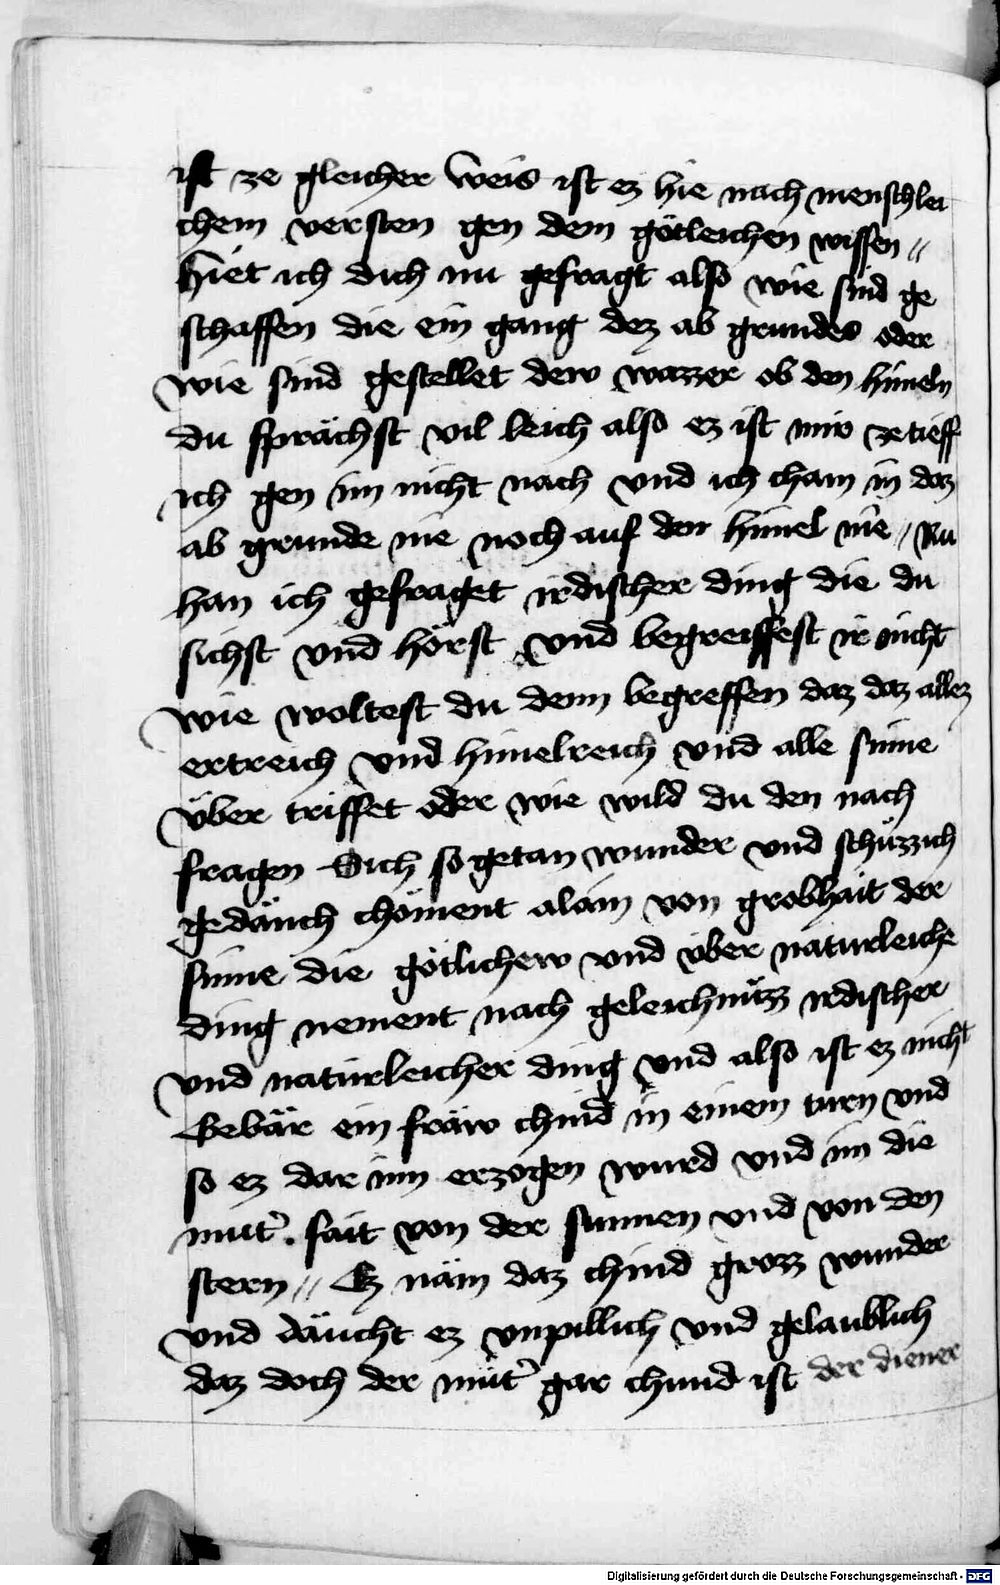 ist ze gleicher weis ist ez hie nach menschlei
chem versten gen dem götleichen wissen //
Hiet ich dich nu gefragt also wie sind ge
schaffen die ein gang dez ab grundes oder
wie sind gestellet dew wazzer ob den himeln
du sprächst vil leich also ez ist mir ze tieff
ich gen im nicht nach vnd ich cham in daz
ab grunde nie noch auf den himel nie // Nu
han ich gefraget irdischer ding die du
sichst vnd hörst vnd begreiffest ir nicht
wie woltest du denn begreffen daz daz allez
ertreich vnd himelreich vnd alle sinne
über triffet oder wie wild du den nach
fragen Sich so getan wunder vnd schüzzich
gedäuch chöment alain von grobhait der
sinne die götlichew vnd über naturleiche
ding nement nach geleichnüzz irdischer
vnd naturleicher ding vnd also ist ez nicht
Gebär ein fraw chind in einem turn vnd
so ez dar inn erzogen wurd vnd im die
mut' . sait von der sunnen vnd von den
stern // Ez näm daz chind grozz wunder
vnd däucht ez vnpillich vnd gelaublich
daz doch der müt' gar chund ist der diener
Digitalisierung gefördert durch die Deutsche Forschungsgemeinschaft - DFG